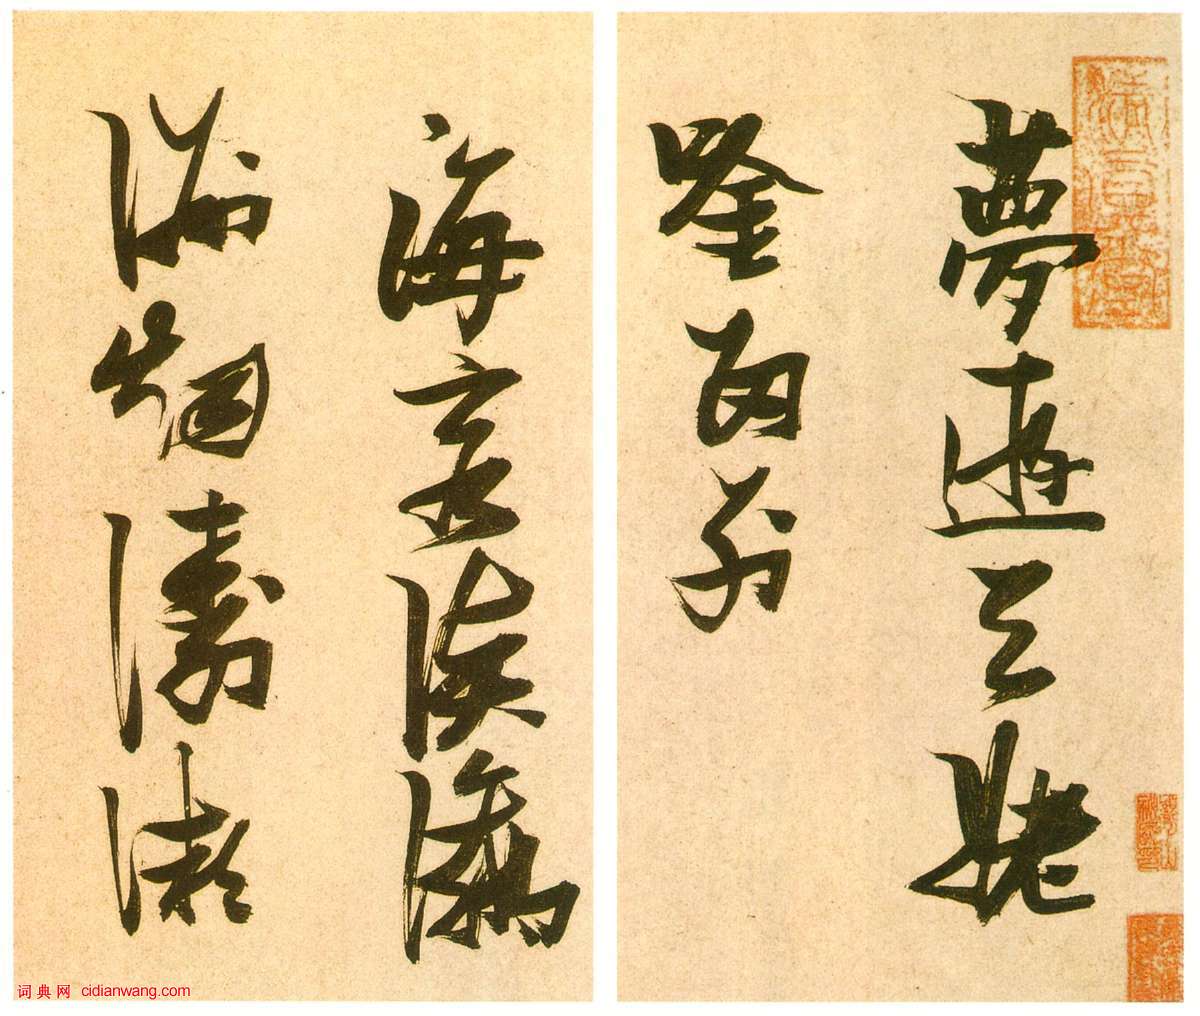 夢遊天姥
唫留别
海客談瀛
洲烟濤微
词典网 cidianwang.com